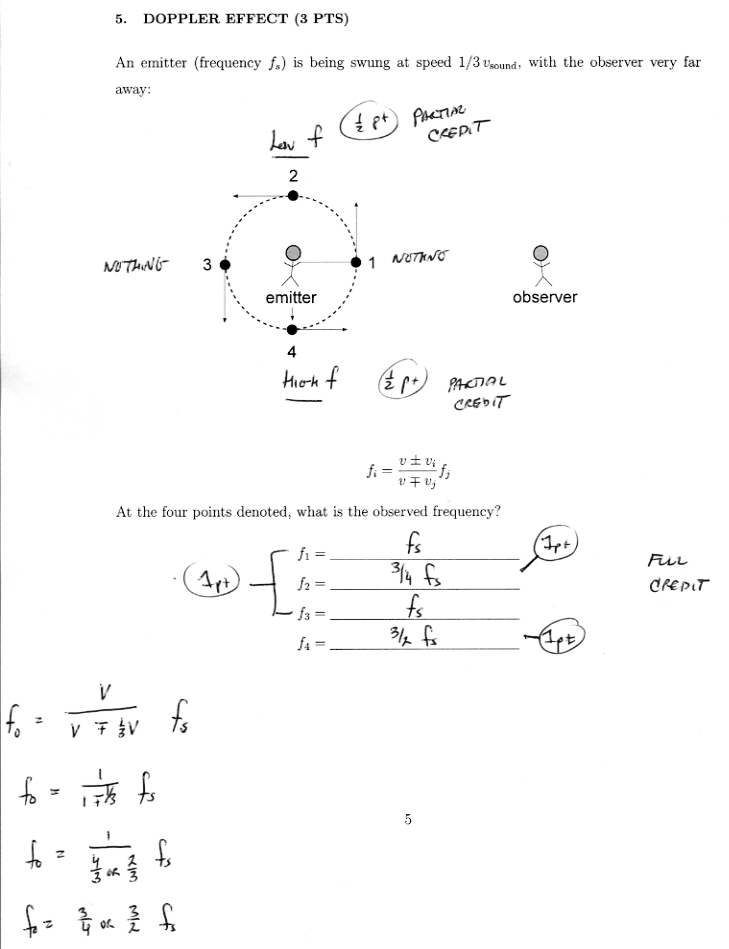 5. DOPPLER EFFECT (3 PTS)
An emitter (frequency fₛ) is being swung at speed 1/3 v_sound, with the observer very far
away:
Low f (½ pt) PARTIAL
CREDIT
2
NOTHING 3 1 NOTHNG
emitter observer
4
HIGH f (½ pt) PARTIAL
CREDIT
fᵢ = (v ± vᵢ)/(v ∓ vⱼ) fⱼ
At the four points denoted, what is the observed frequency?
f₁ = fₛ 1pt
f₂ = 3/4 fₛ
1pt
FULL
CREDIT
f₃ = fₛ
f₄ = 3/2 fₛ 1pt
f₀ = V/(V ∓ ⅓V) fₛ
f₀ = 1/(1 ∓ 1/3) fₛ
f₀ = 1/(4/3 OR 2/3) fₛ
f₀ = 3/4 OR 3/2 fₛ
5